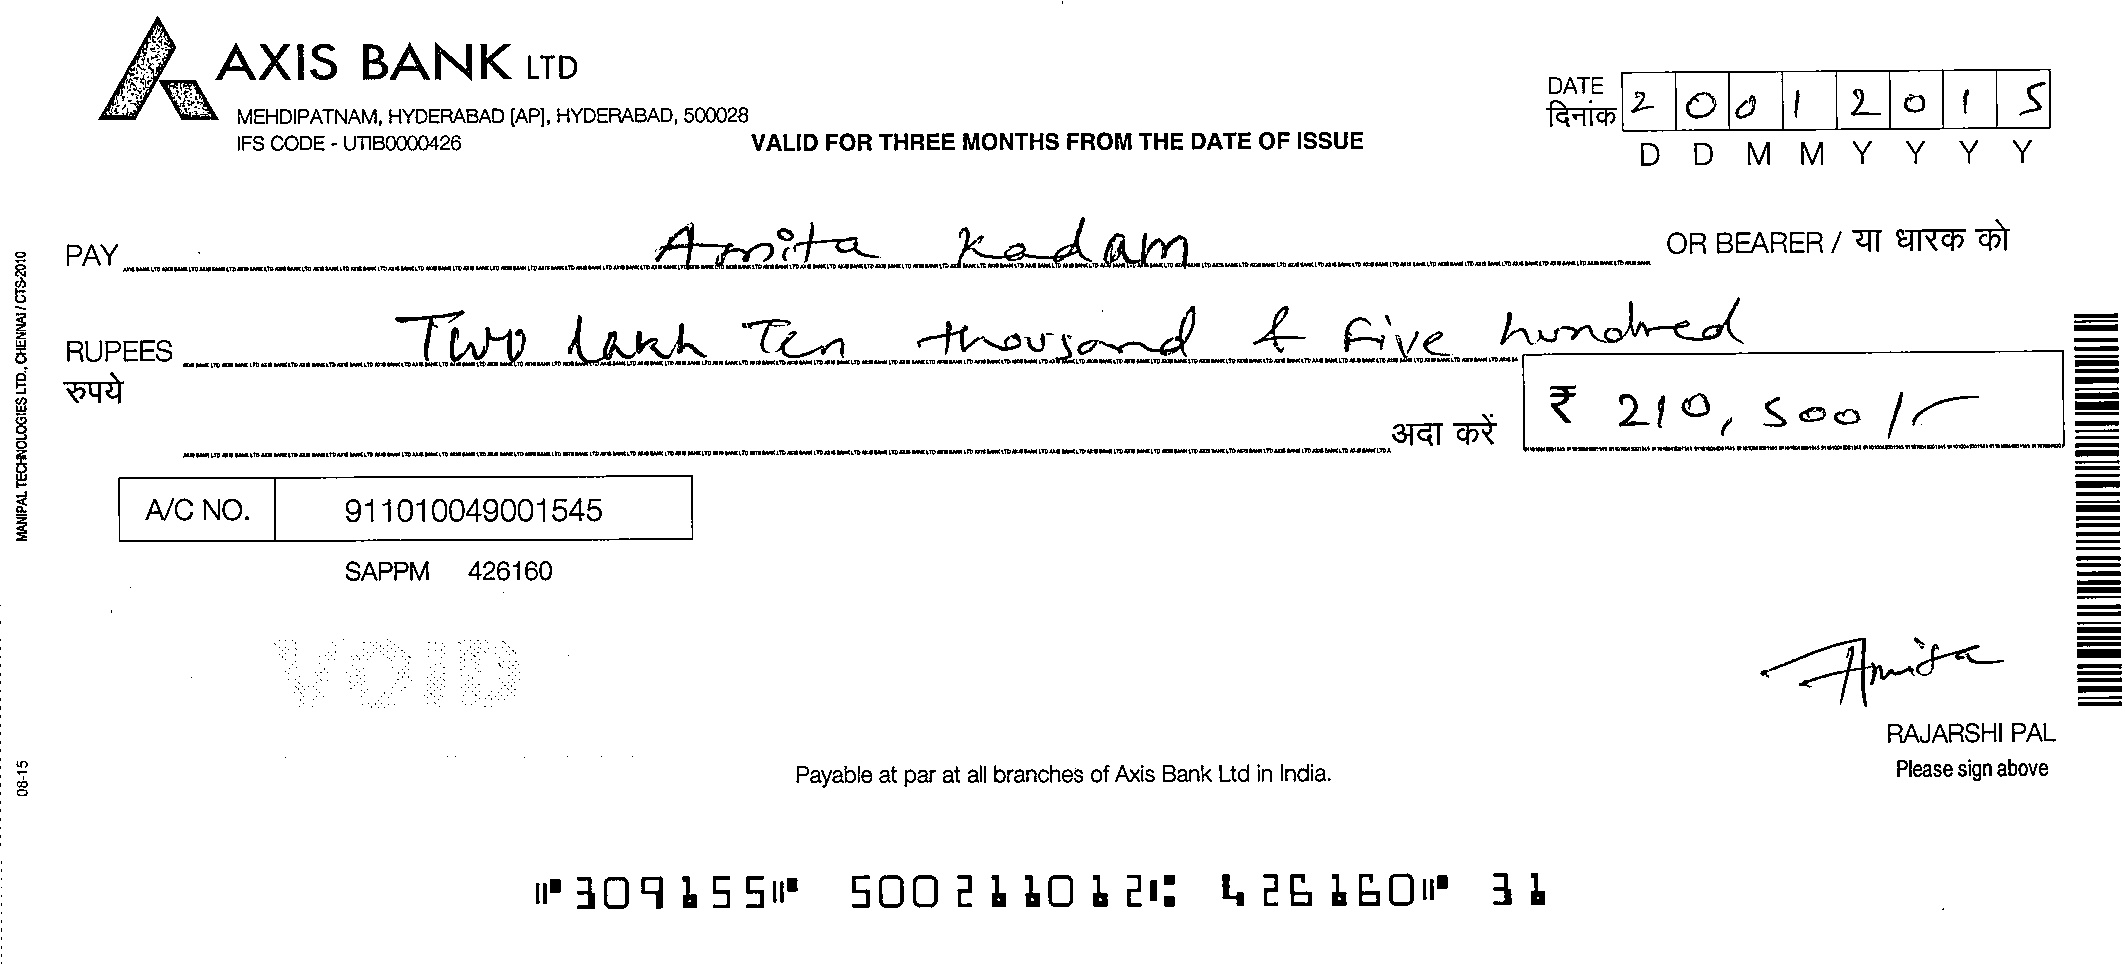 AXIS BANK LTD
MEHDIPATNAM, HYDERABAD [AP], HYDERABAD, 500028
IFS CODE - UTIB0000426
VALID FOR THREE MONTHS FROM THE DATE OF ISSUE
DATE
दिनांक 2 0 0 1 2 0 1 5
D D M M Y Y Y Y
PAY Amita Kadam OR BEARER / या धारक को
RUPEES Two lakh Ten thousand & Five hundred
रुपये
अदा करें ₹ 210,500/-
A/C NO. 911010049001545
SAPPM 426160
VOID
Amita
RAJARSHI PAL
Please sign above
Payable at par at all branches of Axis Bank Ltd in India.
⑈309155⑈ 500211012⑆ 426160⑈ 31
MANIPAL TECHNOLOGIES LTD., CHENNAI / CTS-2010
08-15